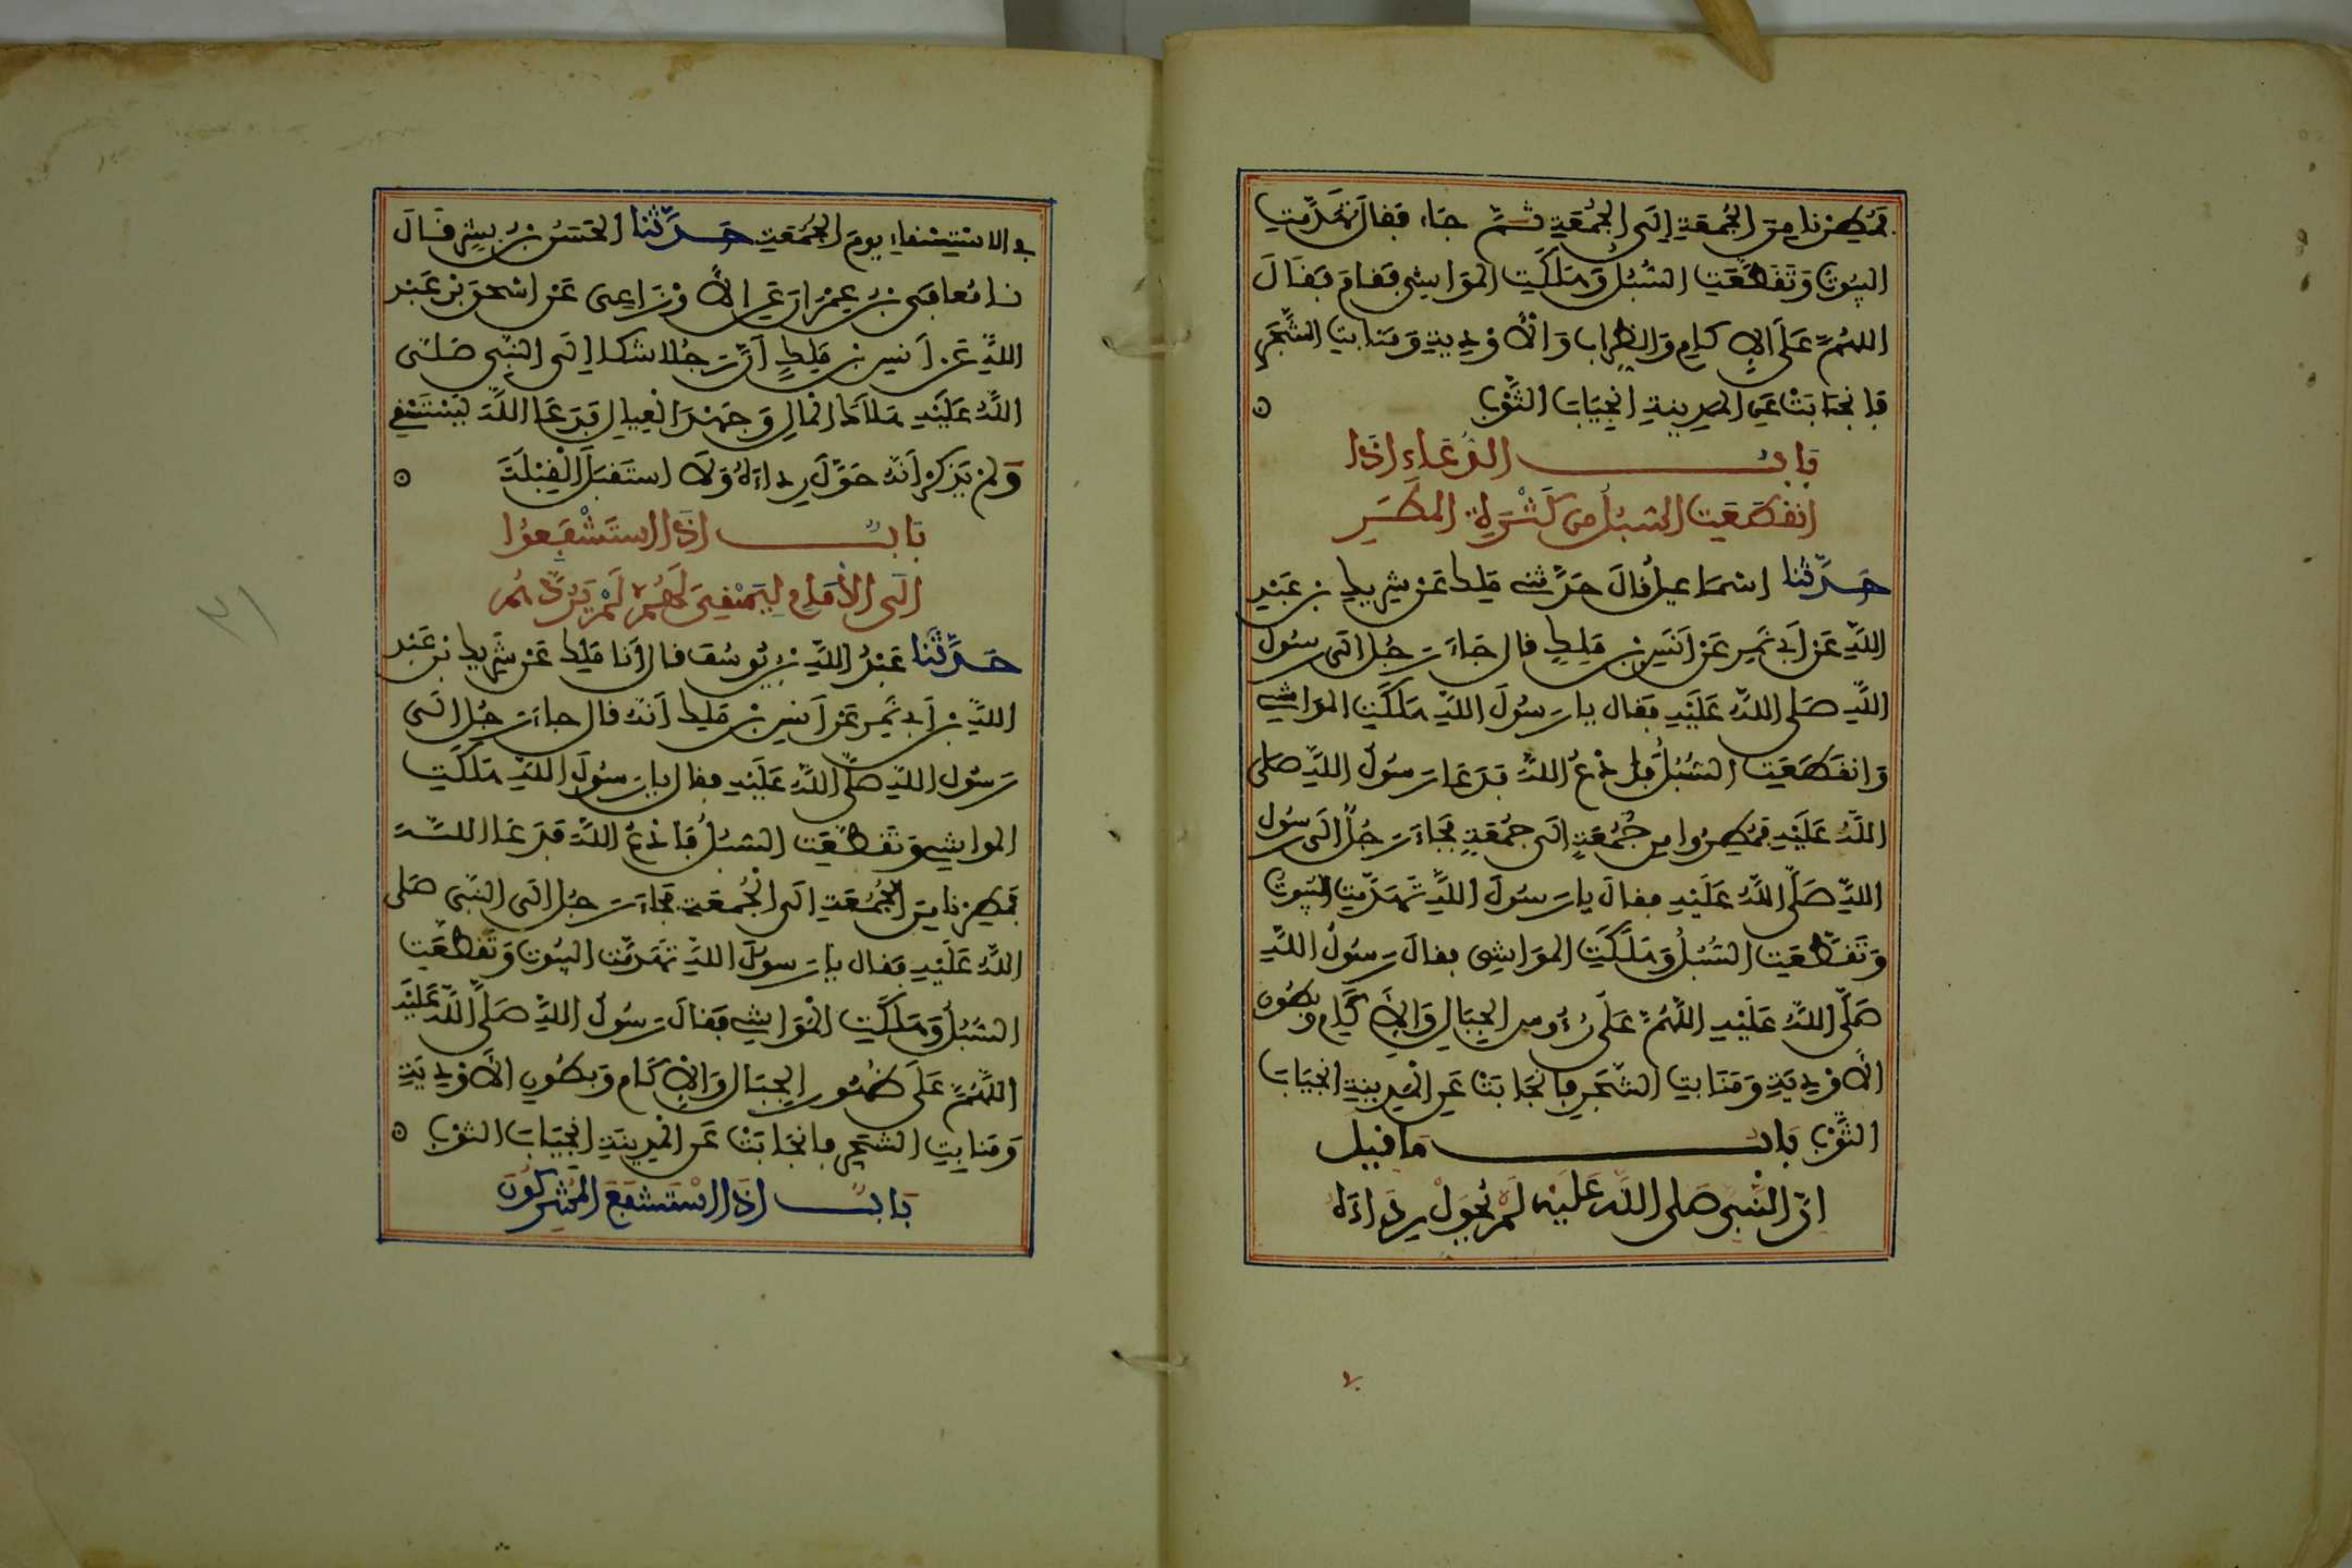 فَمُطِرْنا مِنَ الجُمُعَةِ إِلَى الجُمُعَةِ ثُمَّ جَاءَ فَقالَ تَهَدَّمَتِ
البُيُوتُ وَتَقَطَّعَتِ السُّبُلُ وَهَلَكَتِ المَوَاشِي فَقَامَ فَقَالَ
اللهُمَّ عَلَى الإِكَامِ وَالظِّرَابِ وَالأَوْدِيَةِ وَمَنَابِتِ الشَّجَرِ
فَانْجَابَتْ عَنِ المَدِينَةِ انْجِيَابَ الثَّوْبِ
بَابُ الدُّعَاءِ إذَا
انقَطَعَتِ السُّبُلُ مِن كَثْرَةِ المَطَرِ
حَدَّثَنا إسْمَاعِيلُ قَالَ حَدَّثَنِي مَلِكٌ عَنْ شَرِيكِ بنِ عَبْدِ
اللَّهِ عَنْ أَبِي نَمِرٍ عَنْ أَنَسِ بْنِ مَلِكٍ قال جَاءَ رَجُلٌ إلَى رَسُولِ
اللَّهِ صَلى اللَّهُ عَلَيْهِ فَقال يا رَسُولَ اللَّهِ هَلَكَتِ المَوَاشِي
وَانقَطَعَتِ السُّبُلُ فادْعُ اللَّهَ فَدَعَا رَسُولُ اللَّهِ صَلى
اللَّهُ عَلَيْهِ فَمُطِرُوا مِن جُمُعَةٍ إلَى جُمُعَةٍ فَجَاءَ رَجُلٌ إلَى رَسُولِ
اللَّهِ صَلَّى اللَّهُ عَلَيْهِ فقالَ يا رَسُولَ اللَّهِ تَهَدَّمَتِ البُيُوتُ
وَتَقَطَّعَتِ السُّبُلُ وَهَلَكَتِ المَوَاشِي فقالَ رَسُولُ اللَّهِ
صَلَّى اللَّهُ عَلَيْهِ اللَّهُمَّ عَلَى رُءُوسِ الجِبَالِ وَالإِكَامِ وبُطُونِ
الأَوْدِيَةِ وَمَنَابِتِ الشَّجَرِ فانْجَابَتْ عَنِ المَدِينَةِ انجِيَابَ
الثَّوْبِ بَابُ مَا قِيلَ
انّ النَّبِيَّ صَلى اللَّهُ عَلَيْهِ لَمْ يُحَوِّلْ رِدَاءَهُ
في الاسْتِسْقاءِ يومَ الجُمُعَةِ حَدَّثَنا الحَسَنُ بْنُ بِشْرٍ قَالَ
نا مُعَافَى بْنُ عِمْرَانَ عَنِ الأَوْزَاعِيِّ عَنْ إسْحَقَ بْنِ عَبْدِ
اللَّهِ عَنْ أَنَسِ بْنِ مَلِكٍ أَنَّ رَجُلا شَكَا إِلَى النَّبِيِّ صَلَّى
اللَّهُ عَلَيْهِ هَلاَكَ المَالِ وَجَهْدَ الْعِيَالِ فَدَعَا اللَّهَ يَسْتَسْقِي
وَلَمْ يَذكُرْ أَنَّهُ حَوَّلَ رِدَاءَهُ وَلَا استَقبَلَ الْقِبْلَةَ
بَابٌ إذَا اسْتَشْفَعُوا
إلَى الإمَامِ لِيَسْتَسْقِيَ لَهُمْ لَمْ يَرُدَّهُمْ
حَدَّثَنَا عَبْدُ اللَّهِ بْنُ يُوسُفَ قَالَ أنَا مَلِكٌ عَنْ شَرِيكِ بْنِ عَبْدِ
اللَّهِ بْنِ أَبِي نَمِرٍ عَنْ أَنَسِ بْنِ مَلِكٍ أَنَّهُ قال جاءَ رَجُلٌ إلَى
رَسُولِ اللَّهِ صَلَّى اللَّهُ عَلَيْهِ فقال يا رَسُولَ اللَّهِ هَلَكَتِ
المواشِي وَتَقَطَّعَتِ السُّبُلُ فَادْعُ اللَّهَ فَدَعَا اللَّهَ
فَمُطِرْنا مِنَ الجُمُعَةِ إلَى الْجُمُعَةِ فَجَاءَ رَجُلٌ إلَى النَّبِيِّ صَلى
اللَّهُ عَلَيْهِ فَقال يا رَسولَ اللَّهِ تَهَدَّمَتِ البُيُوتُ وَتَقَطَّعَتِ
السُّبُلُ وَهَلَكَتِ الْمَوَاشِي فَقالَ رَسُولُ اللَّهِ صَلَّى اللَّهُ عَلَيْهِ
اللَّهُمَّ عَلَى ظُهُورِ الجِبَالِ وَالإكَامِ وَبُطُونِ الأَوْدِيَةِ
وَمَنابِتِ الشَّجَرِ فانجَابَتْ عَنِ المَدِينَةِ انْجِيَابَ الثَّوْبِ
بَابٌ إذَا اسْتَشْفَعَ المُشْرِكُونَ